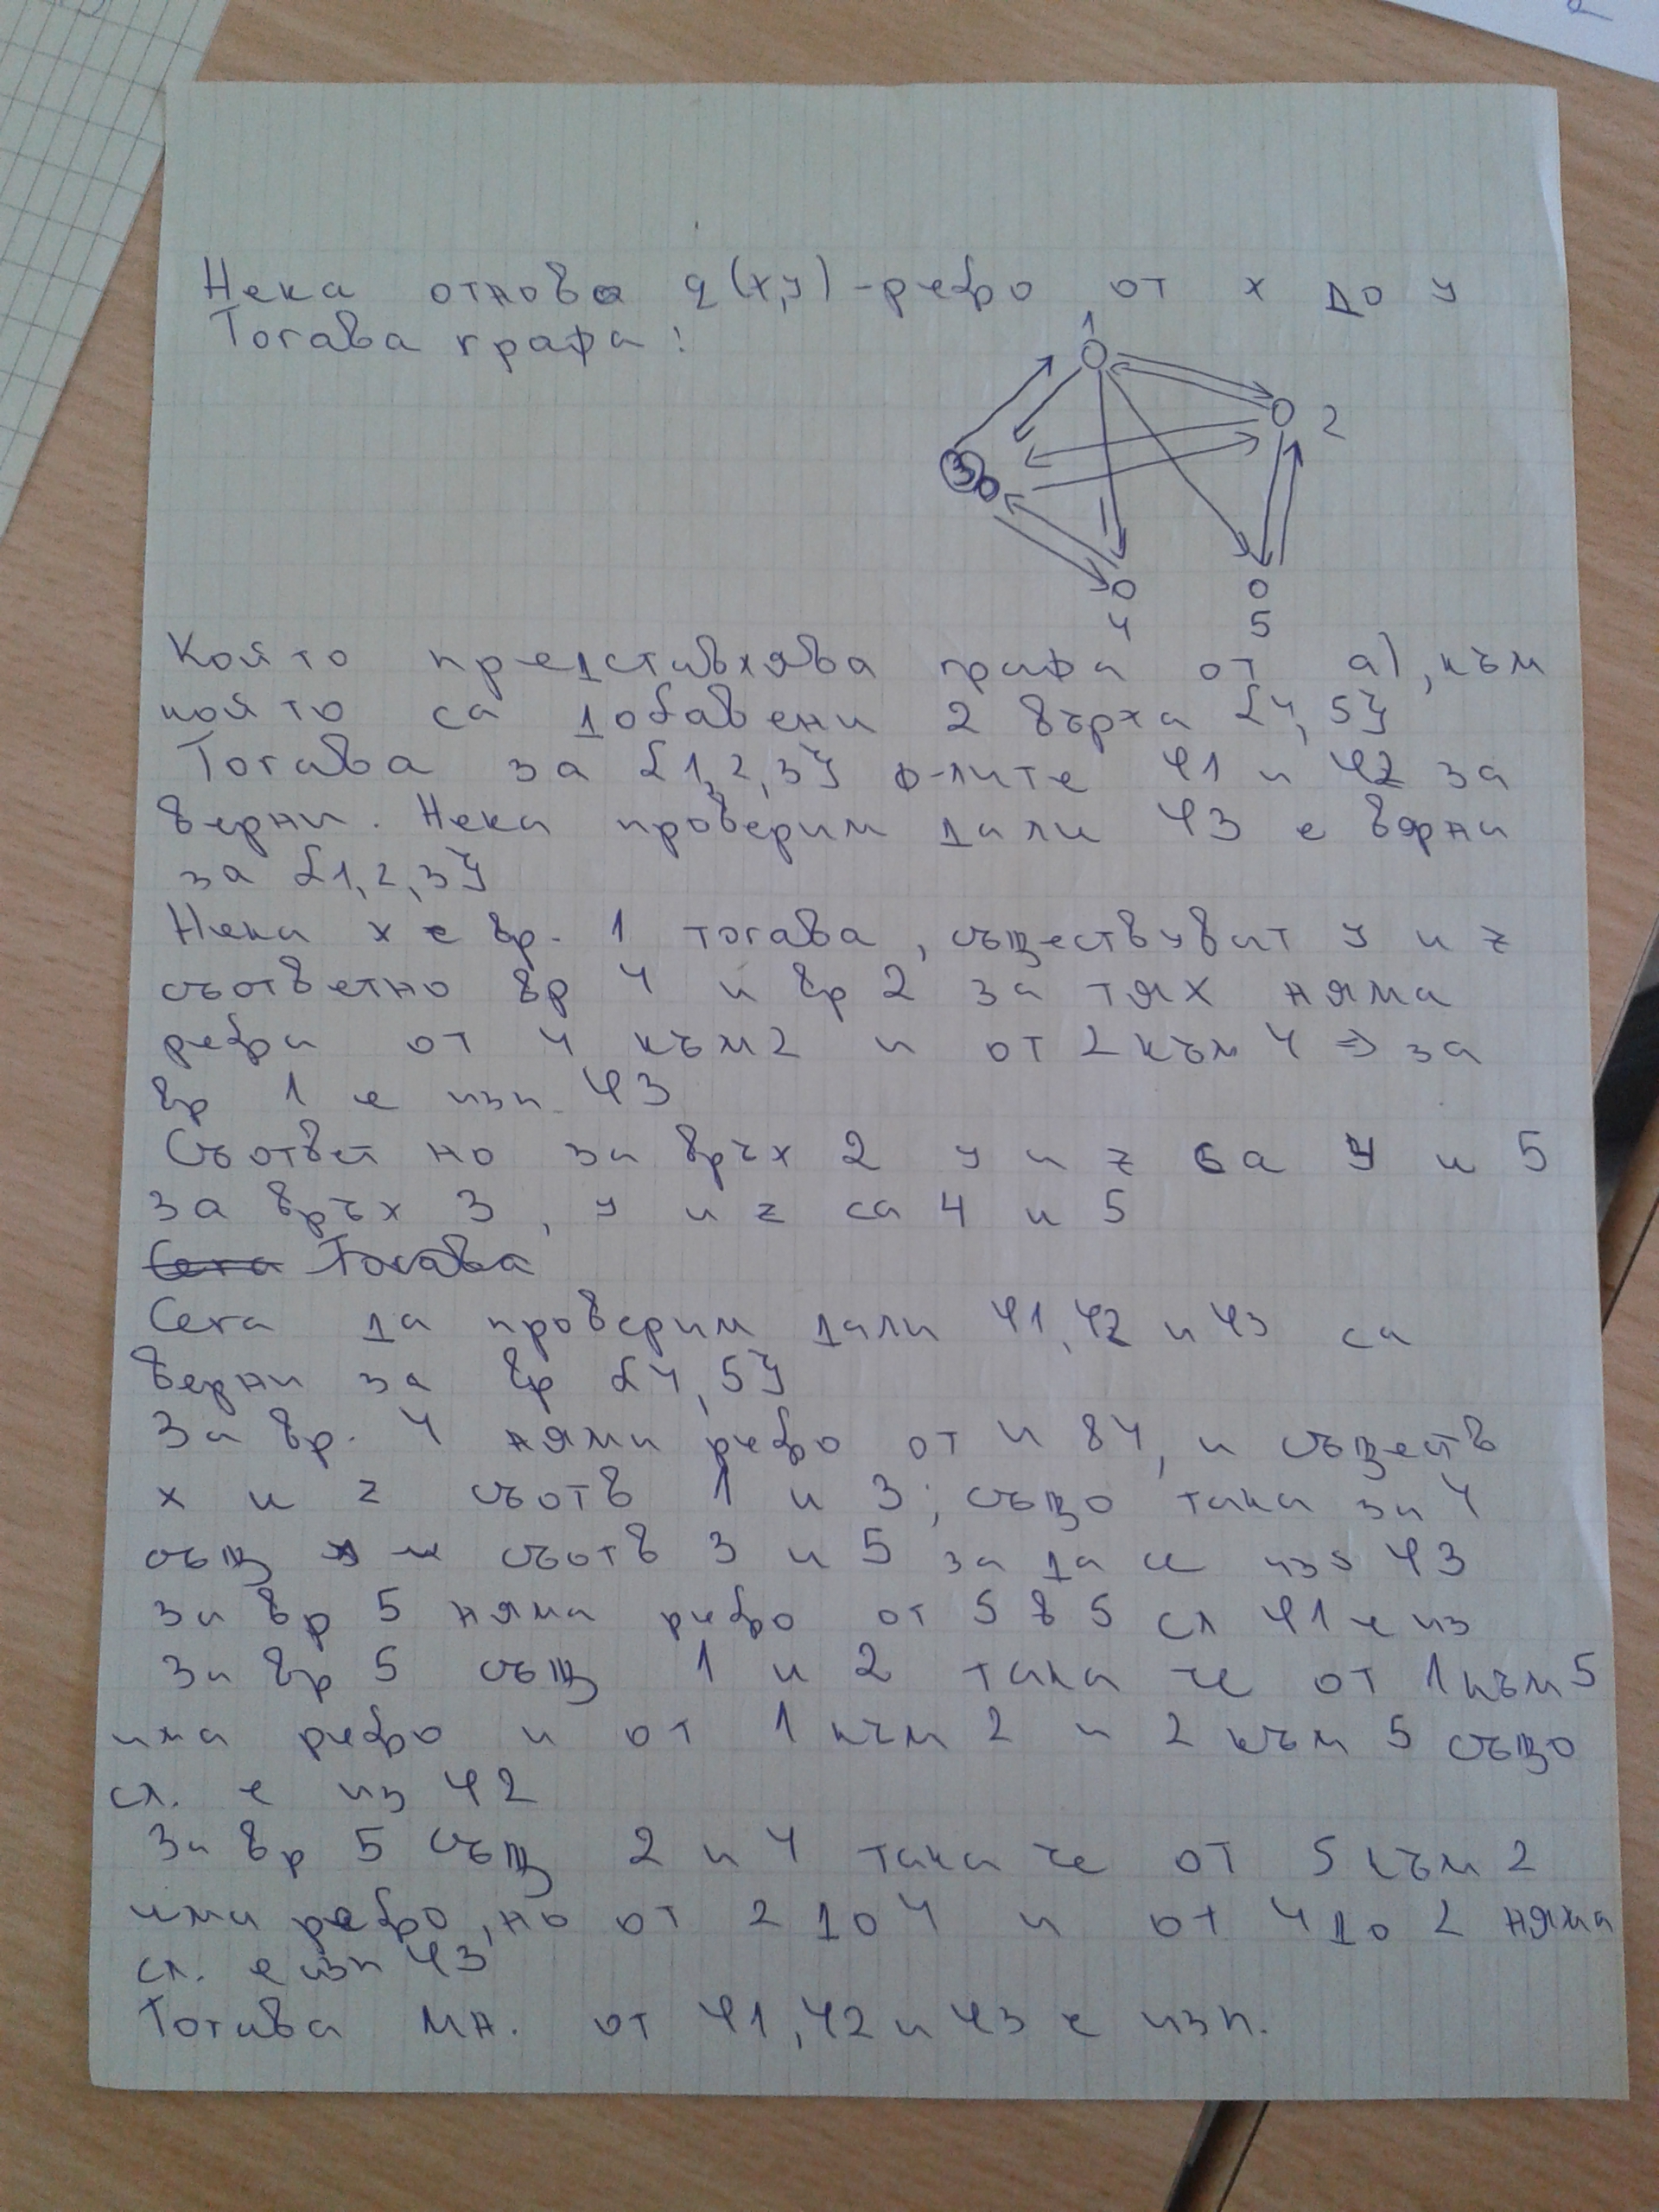 Нека отново q(x,y)-ребро от x до y
Тогава графа:
1
2
3
4
5
Който представлява графа от а), към
който са добавени 2 върха {4,5}
Тогава за {1,2,3} ф-лите φ1 и φ2 за
верни. Нека проверим дали φ3 е вярна
за {1,2,3}
Нека x е вр. 1 тогава, съществуват y и z
съответно вр 4 и вр 2 за тях няма
ребра от 4 към 2 и от 2 към 4 => за
вр 1 е изп. φ3
Съответно за връх 2 y и z са 4 и 5
за връх 3, y и z са 4 и 5
Сега Тогава
Сега да проверим дали φ1, φ2 и φ3 са
верни за вр {4,5}
За вр. 4 няма ребро от 4 в 4, и съществ
x и z съотв 1 и 3; също така за 4
същ съотв 3 и 5 за да се изп φ3
за вр 5 няма ребро от 5 в 5 сл φ1 е из
за вр 5 същ 1 и 2 така че от 1 към 5
има ребро и от 1 към 2 и 2 към 5 също
сл. е из φ2
За вр 5 същ 2 и 4 така че от 5 към 2
има ребро, но от 2 до 4 и от 4 до 2 няма
сл. е изп φ3
Тогава мн. от φ1, φ2 и φ3 е изп.